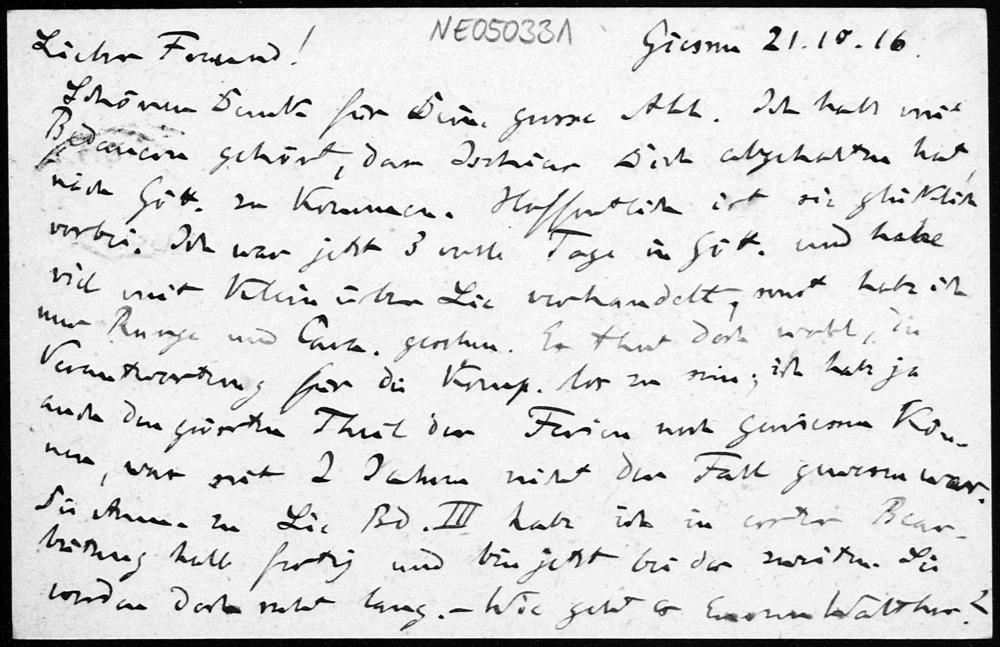 NE050331
Lieber Freund! Giessen 21.10.16.
Schönen Dank für Deine grosse Abh. Ich habe mit
Bedauern gehört, dass Dich abgehalten hat,
nach Gött. zu kommen. Hoffentlich ist sie glücklich
vorbei. Ich war jetzt 3 volle Tage in Gött. und habe
viel mit Klein über Lie verhandelt, sonst habe ich
nur Runge und Cara. gesehen. Es thut doch wohl, die
Verantwortung für die Komp. los zu sein; ich habe ja
auch den grössten Theil der Ferien noch geniessen kön-
nen, was seit 2 Jahren nicht der Fall gewesen war.
Die Anm. zu Lie Bd. III habe ich in erster Bear-
beitung halb fertig und bin jetzt bei der zweiten. Sie
werden doch recht lang. – Wie geht es Eurem Walther?